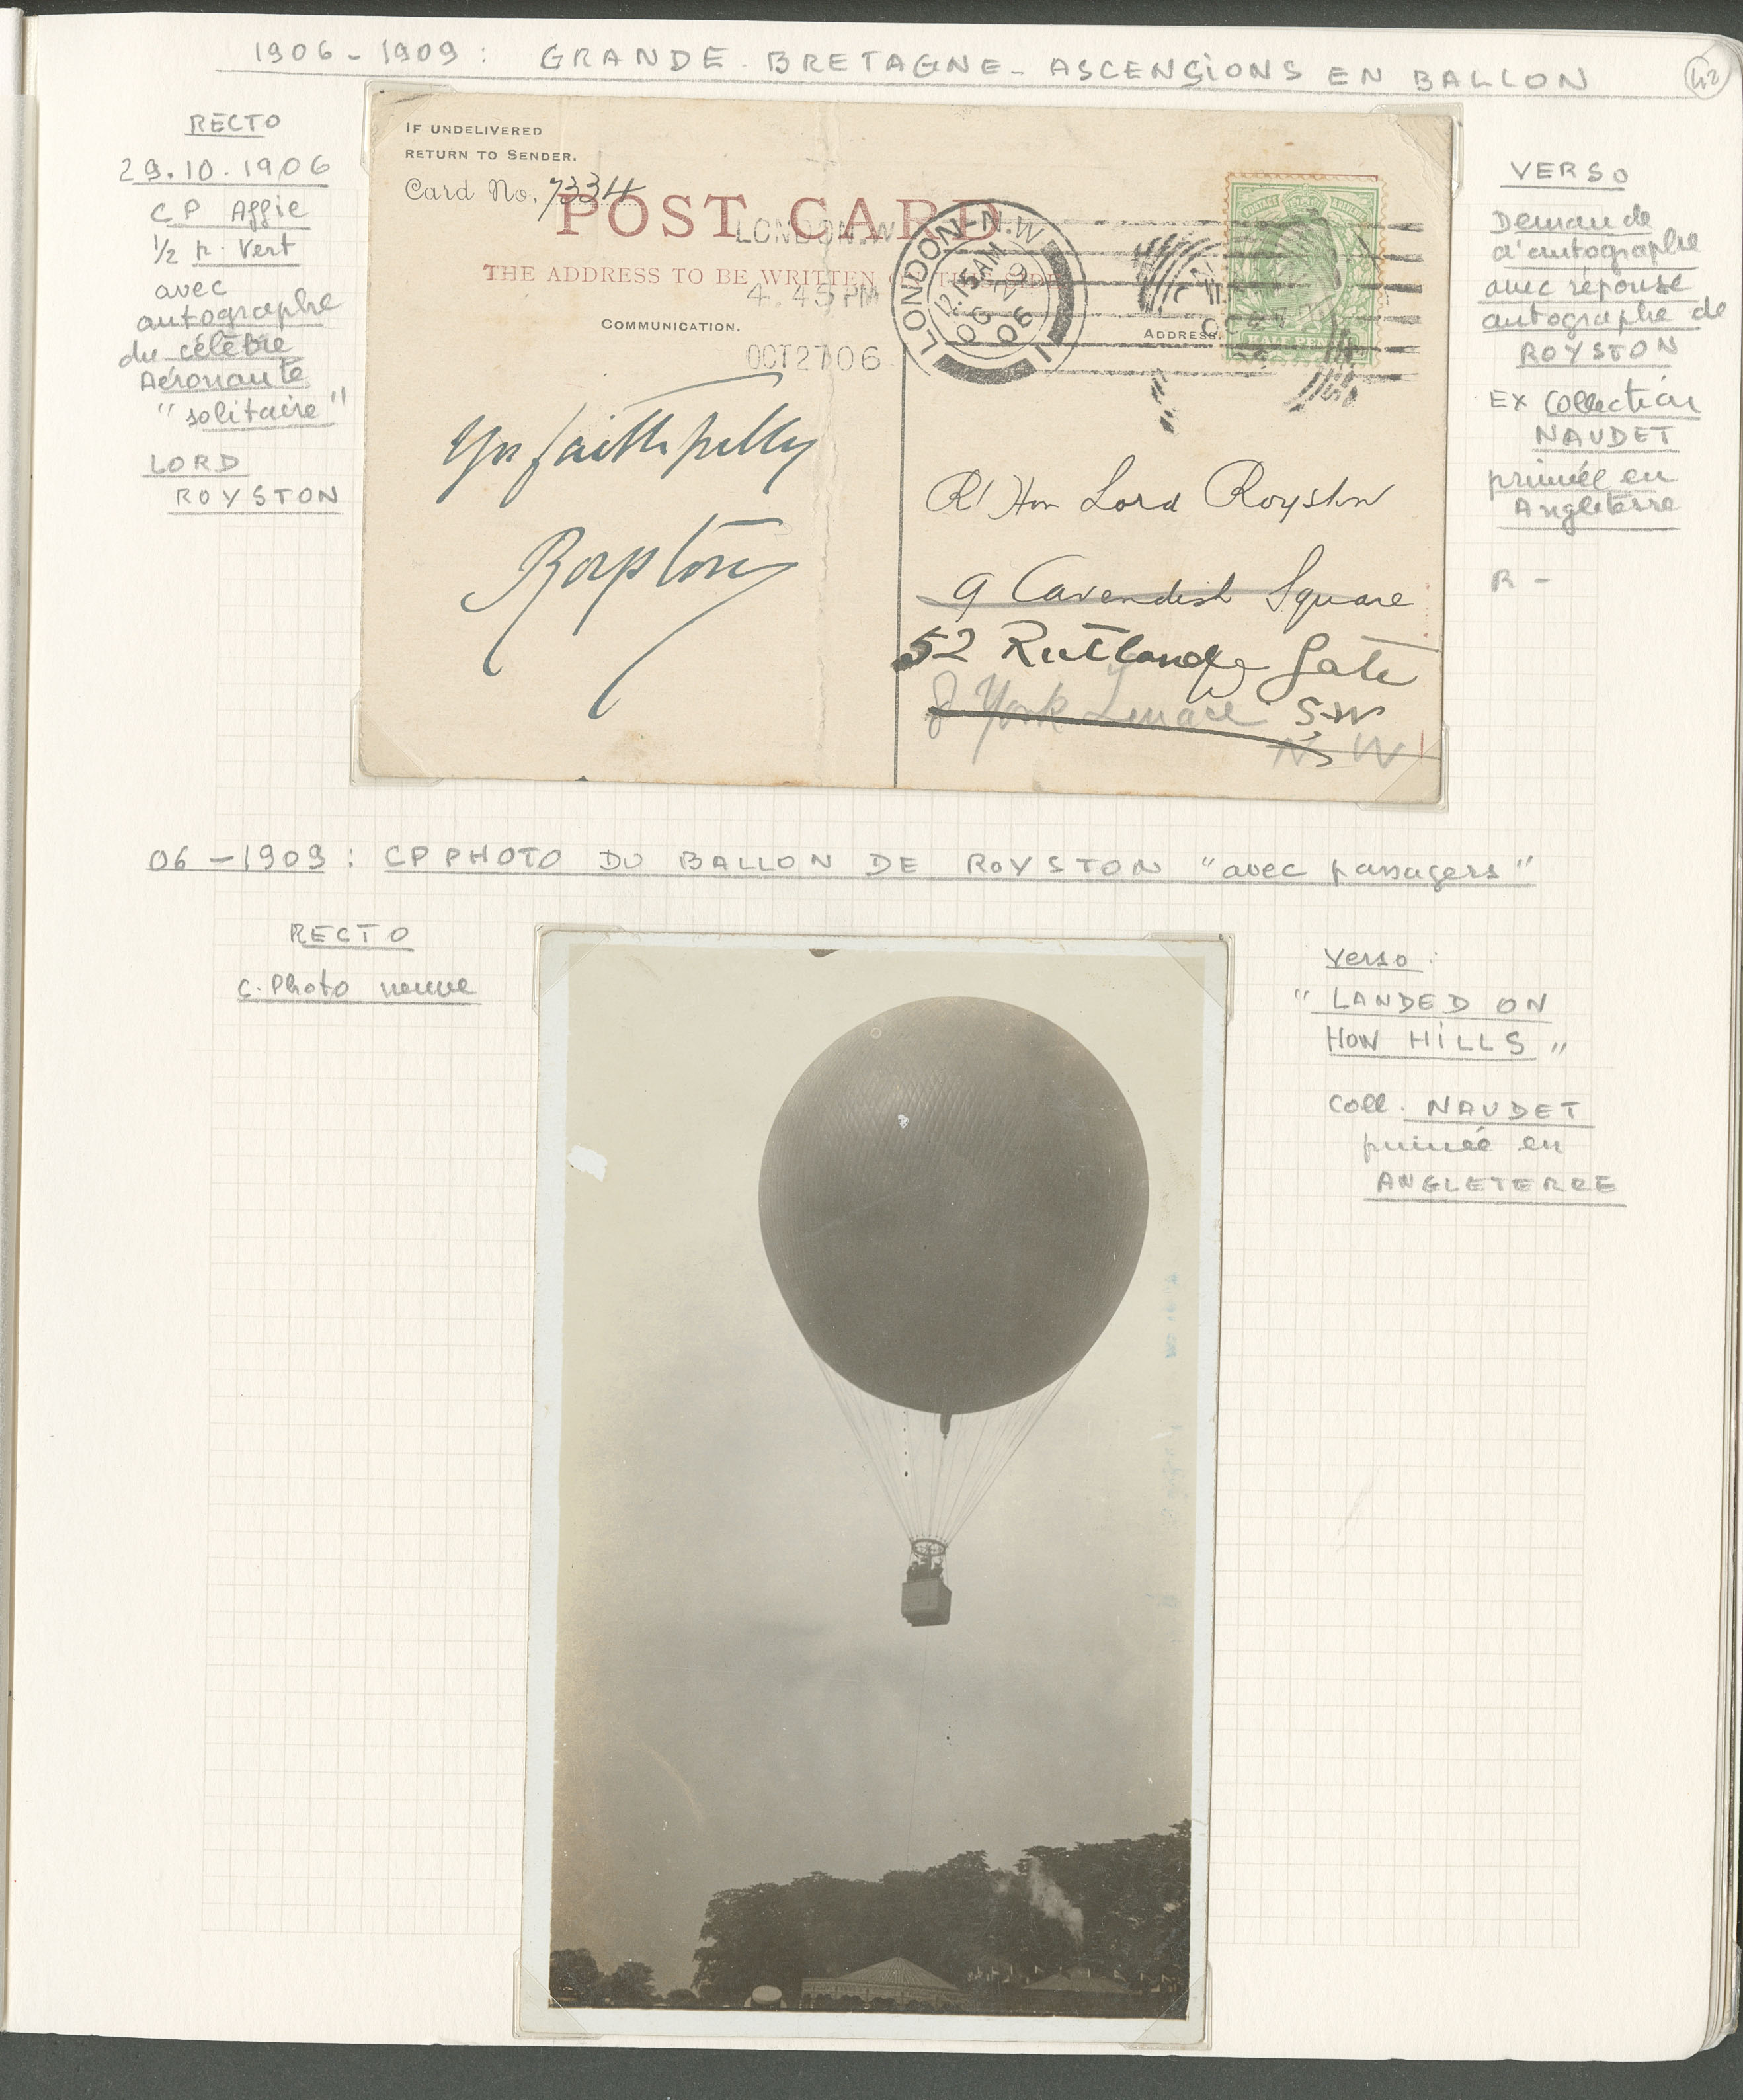 1906-1909: GRANDE-BRETAGNE-ASCENSIONS EN BALLON
42
RECTO
29.10.1906
CP Affie
1/2 p. vert
avec
autographe
du célèbre
Aéronaute
"solitaire"
LORD
ROYSTON
IF UNDELIVERED
RETURN TO SENDER.
Card No. 7334
POST CARD
THE ADDRESS TO BE WRITTEN THIS SIDE
COMMUNICATION.
ADDRESS.
LONDON.W
4.45PM
OCT 27 06
LONDON-N.W
12.15AM
OC 29
06
POSTAGE REVENUE
HALF PENNY
Yrs faithfully
Royston
Rt Hon Lord Royston
9 Cavendish Square
52 Rutland Gate
8 York Terrace S.W
N W
VERSO
Demande
d'autographe
avec réponse
autographe de
ROYSTON
EX Collection
NAUDET
primée en
Angleterre
R -
06-1909: CP PHOTO DU BALLON DE ROYSTON "avec passagers"
RECTO
C. Photo neuve
Verso:
"LANDED ON
HOW HILLS"
Coll. NAUDET
primée en
ANGLETERRE